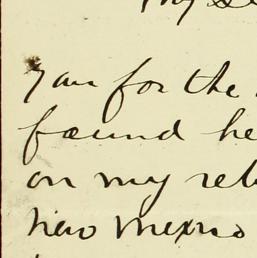 My
for the
found he
on my ret
New Mexico